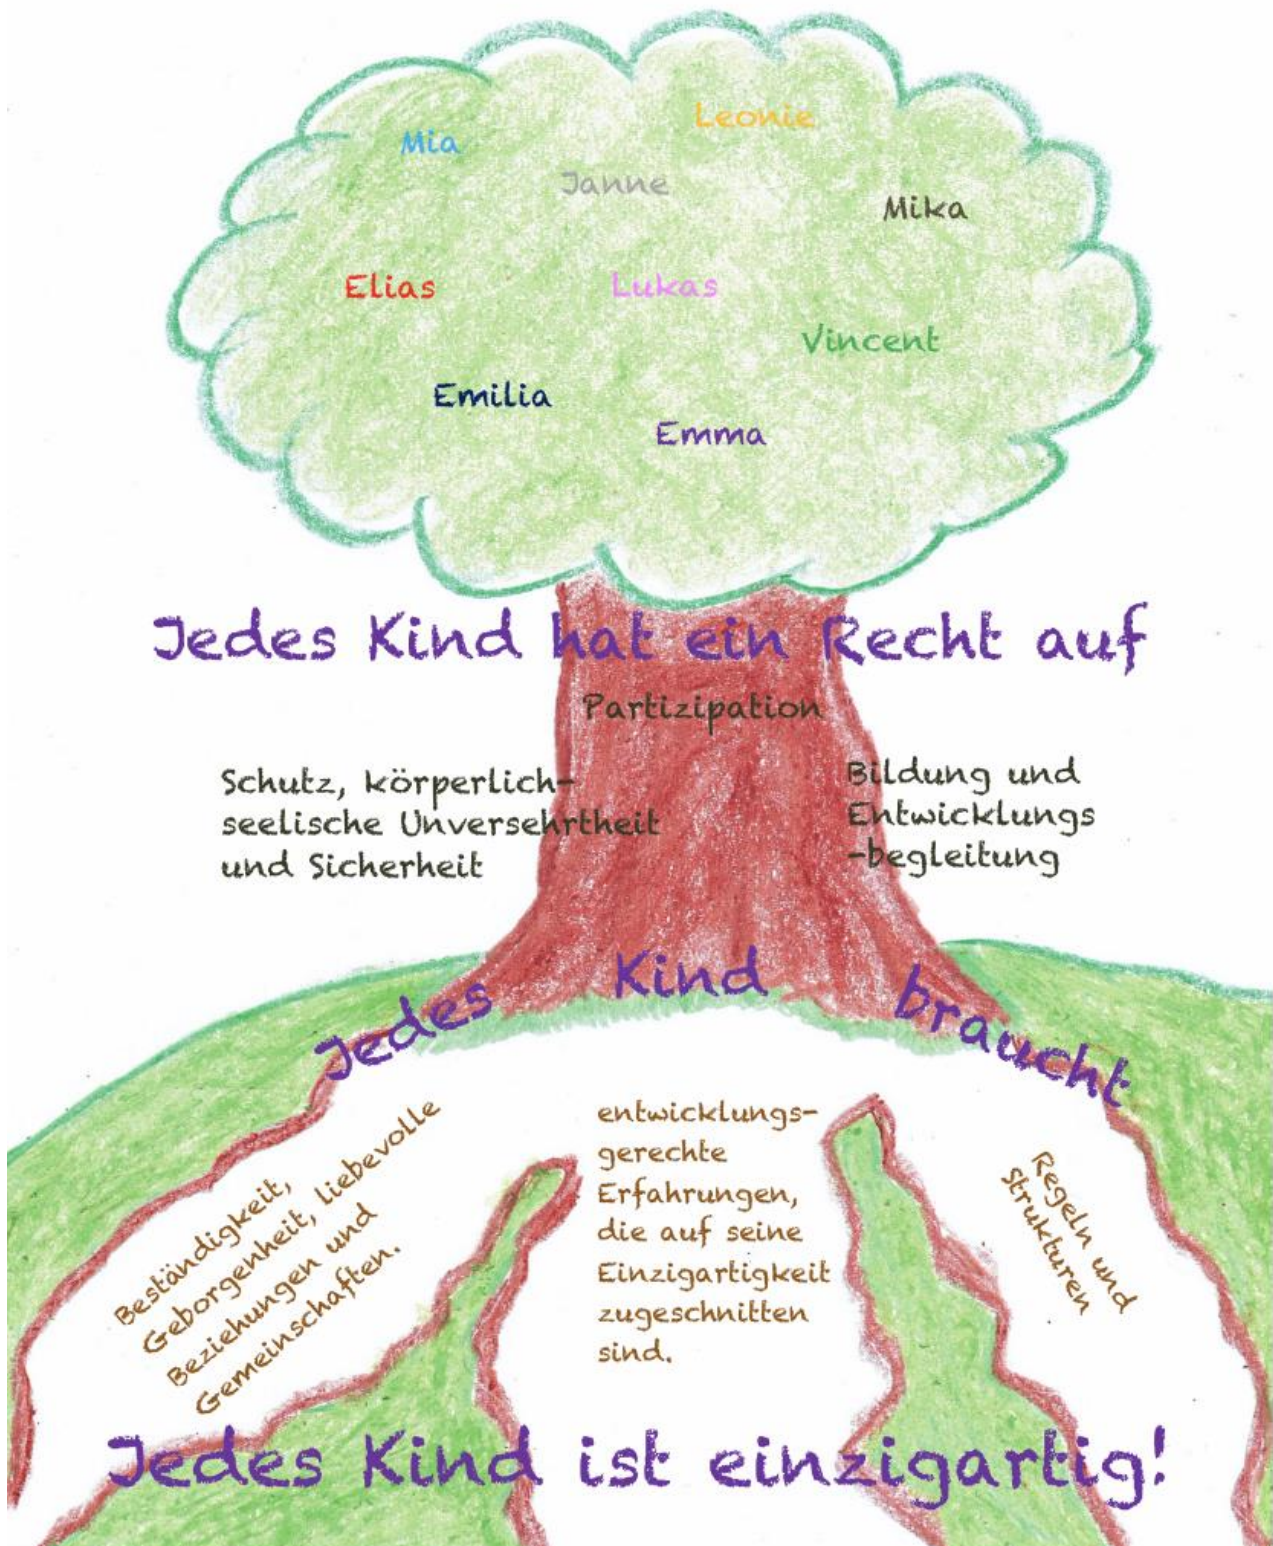 Leonie
Mia
Janne
Mika
Elias
Lukas
Vincent
Emilia
Emma
Jedes Kind hat ein Recht auf
Partizipation
Schutz, körperlich-
seelische Unversehrtheit
und Sicherheit
Bildung und
Entwicklungs
-begleitung
Jedes Kind braucht
Beständigkeit,
Geborgenheit, liebevolle
Beziehungen und
Gemeinschaften.
entwicklungs-
gerechte
Erfahrungen,
die auf seine
Einzigartigkeit
zugeschnitten
sind.
Regeln und
Strukturen
Jedes Kind ist einzigartig!